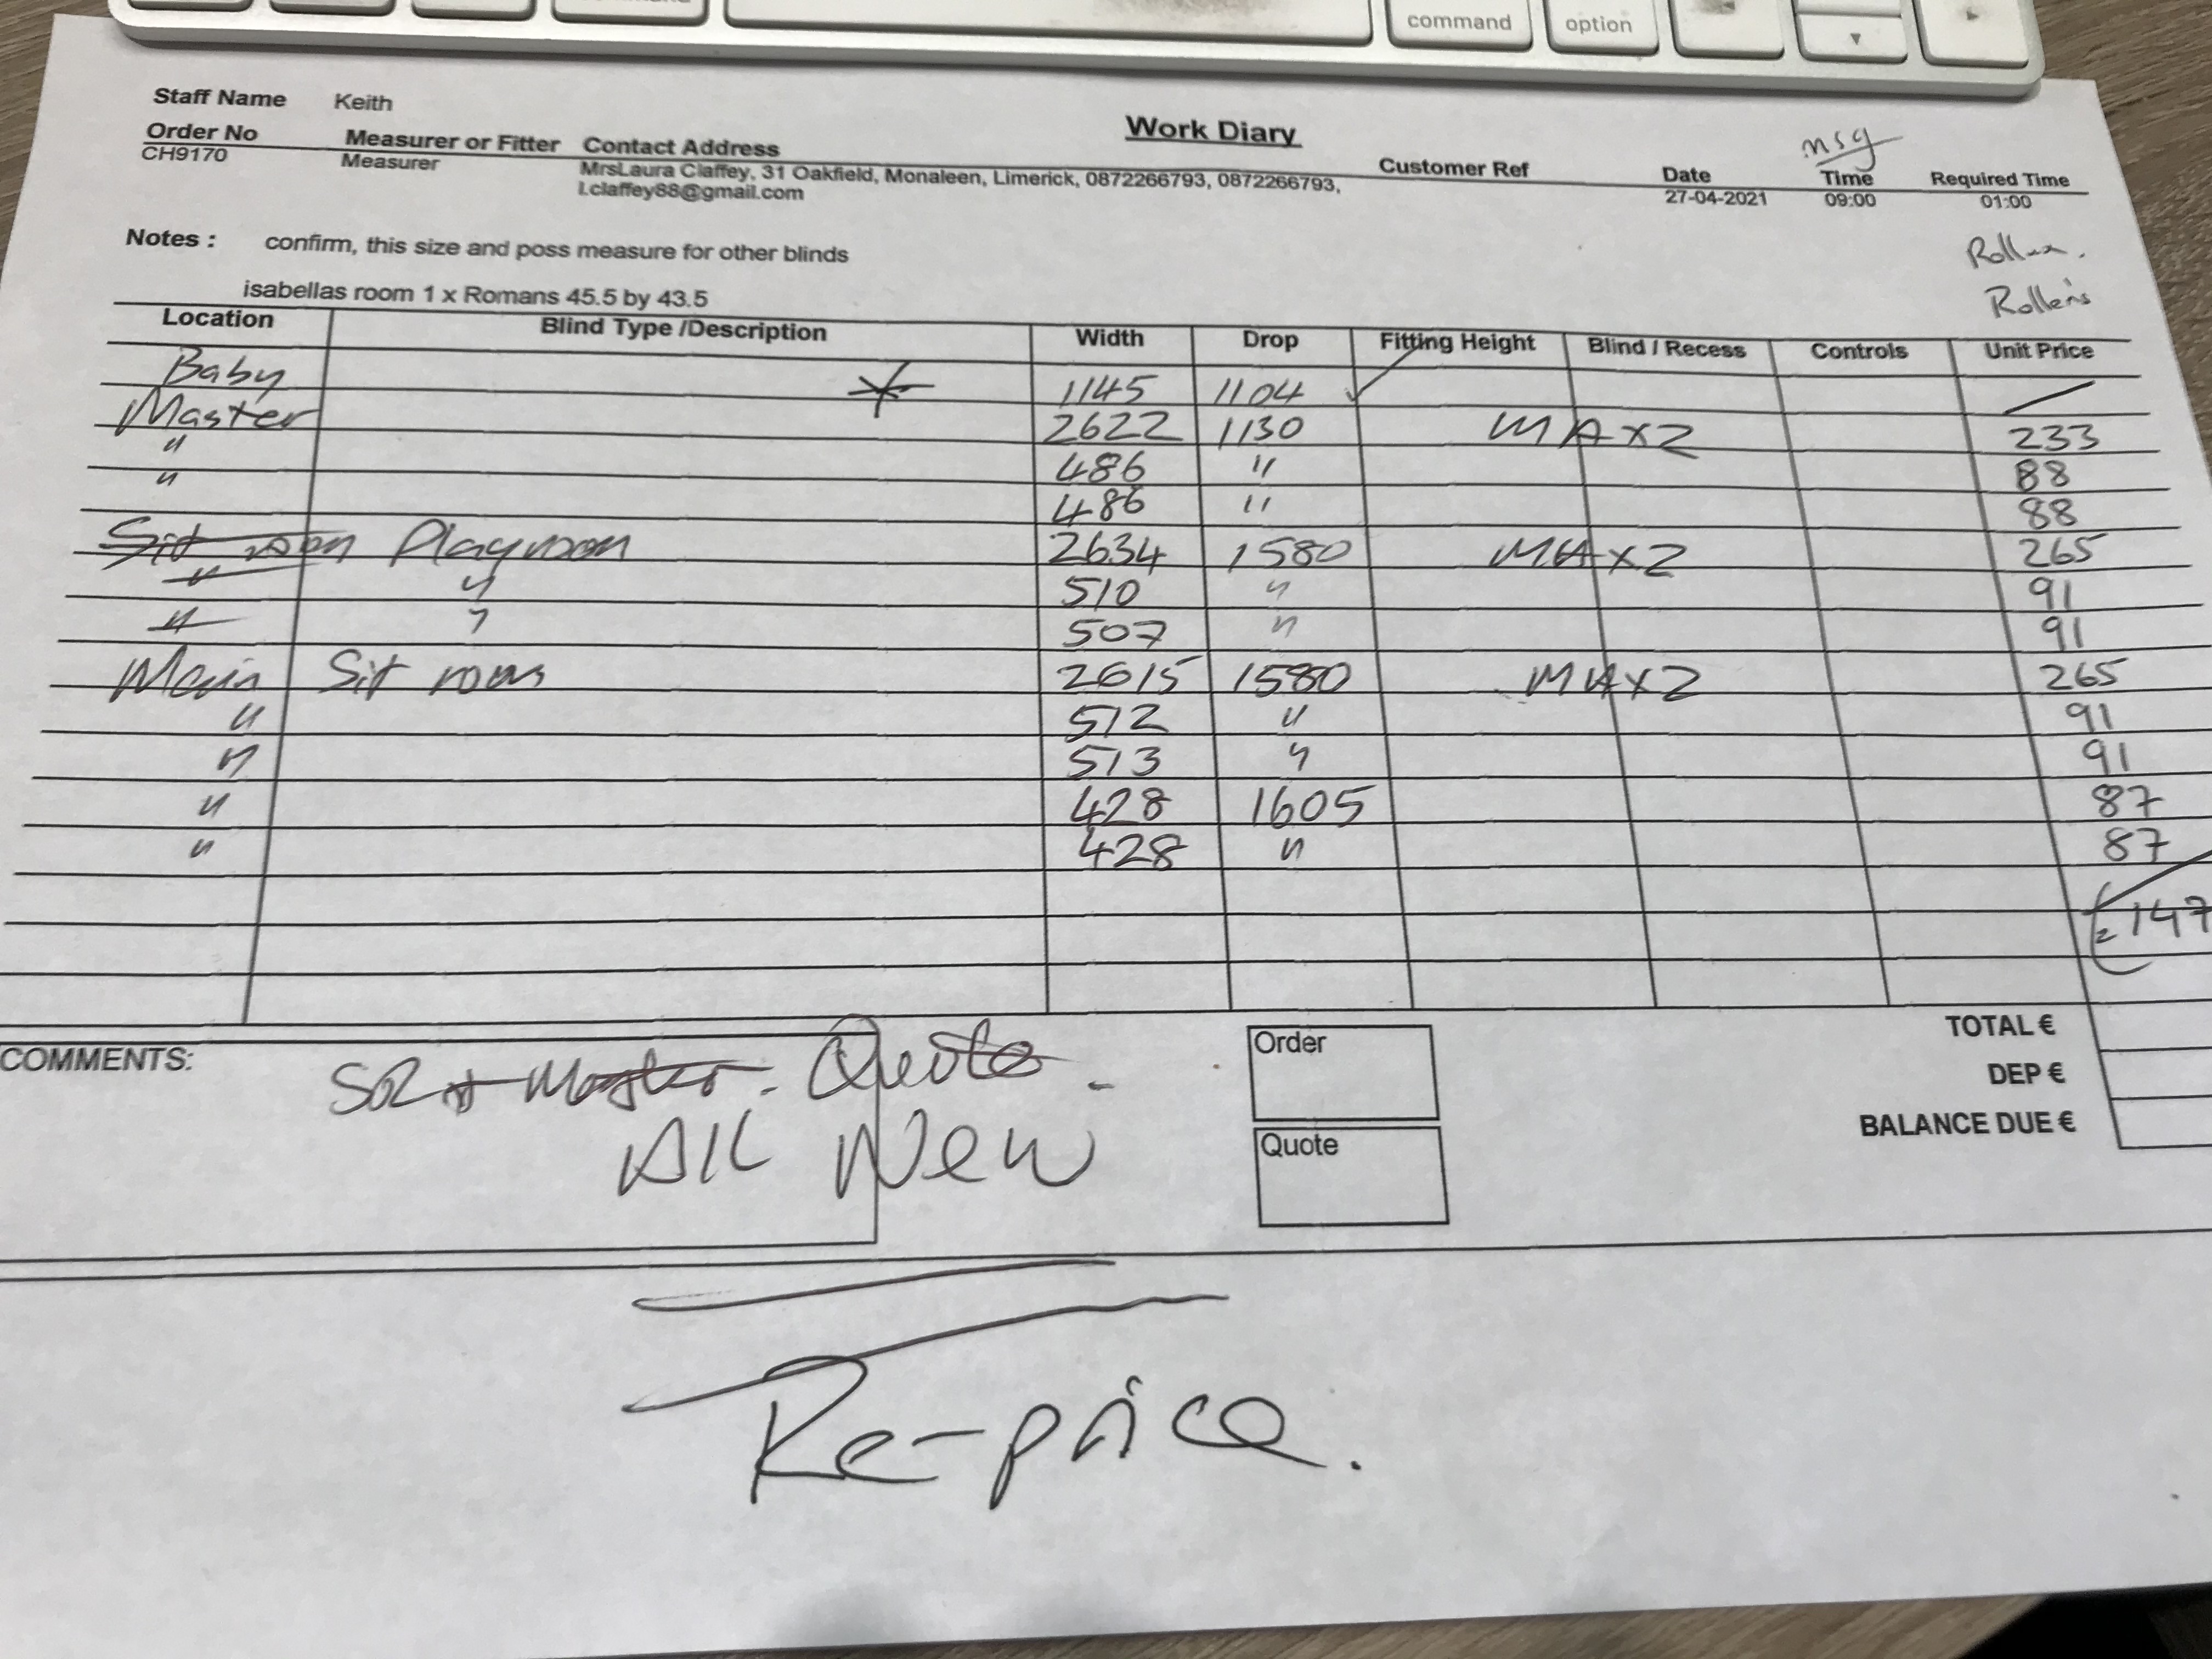 command option
Staff Name Keith
Work Diary
msg
Order No Measurer or Fitter Contact Address Customer Ref Date Time Required Time
CH9170 Measurer MrsLaura Claffey, 31 Oakfield, Monaleen, Limerick, 0872266793, 0872266793, 27-04-2021 09:00 01:00
l.claffey88@gmail.com
Notes : confirm, this size and poss measure for other blinds
isabellas room 1 x Romans 45.5 by 43.5
Rollers
Location Blind Type /Description Width Drop Fitting Height Blind / Recess Controls Unit Price
Baby 1145 1104 ✓
Master 2622 1130 MAX2 233
" 486 " 88
" 486 " 88
Sit room Playroom 2634 1580 MAX2 265
" " 510 " 91
" " 507 " 91
Main Sit room 2615 1580 MAX2 265
" 512 " 91
" 513 " 91
" 428 1605 87
" 428 " 87
147
COMMENTS: Master. Quote
All New
Order
Quote
TOTAL €
DEP €
BALANCE DUE €
Re-price.